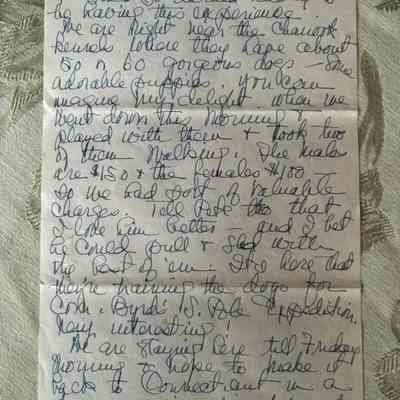 be having this experience.
We are right near the Chinook
Kennels where they have about
50 or 60 gorgeous dogs - some
adorable puppies. You can
imagine my delight when we
went down this morning &
played with them & took two
of them walking. The males
are $150 & the females $100 -
so we had sort of valuable
charges. Tell Pete tho that
I love him better - and I bet
he could pull a sled with
the best of 'em. It's here that
they're training the dogs for
Com. Byrd's S. Pole Expedition.
Very interesting!
We are staying here till Friday
morning & hope to make it
back to Connecticut in a